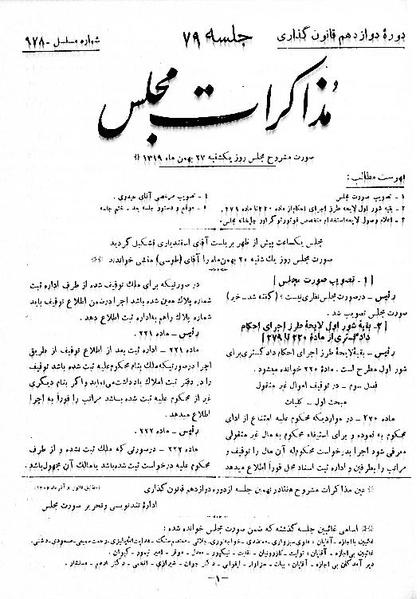 دورهٔ دوازدهم قانون گذاری
جلسه ۷۹
شماره مسلسل - ۹۷۸
مذاکرات مجلس
صورت مشروح مجلس روز یکشنبه ۲۷ بهمن ماه ۱۳۱۹
فهرست مطالب:
۱ - تصویب صورت مجلس
۲ - بقیه شور اول لایحه طرز اجرای احکام از ماده ۲۲۰ تا ماده ۲۷۹
۴ - تصویب مرخصی آقای
۵ - موقع و دستور جلسه بعد - ختم جلسه
مجلس یکساعت پیش از ظهر بریاست آقای اسفندیاری تشکیل گردید
صورت مجلس روز یك شنبه ۲۰ بهمن ماه را آقای (طوسی) منشی خواندند
[۱ - تصویب صورت مجلس]
رئیس - در صورت مجلس نظری نیست؟ (گفته شد - خیر)
صورت مجلس تصویب شد.
[۲ - بقیه شور اول لایحه طرز اجرای احکام
دادگستری از ماده ۲۲۰ تا ۲۷۹]
رئیس - بقیهٔ لایحهٔ طرز اجرای احکام دادگستری برای
شور اول مطرح است. ماده ۲۲۰ خوانده میشود.
فصل سوم - در توقیف اموال غیر منقول
مبحث اول - کلیات
ماده ۲۲۰ - در مواردیکه محکوم علیه امتناع از ادای
محکوم به نموده و برای استیفاء محکوم به مال غیر منقولی
معرفی شود اجرا بدرخواست محکوم له آن مال را توقیف و
مراتب را بطرفین و اداره ثبت اسناد محل فوراً اطلاع میدهد
در صورتیکه برای ملك ثبت شده از طرف اداره ثبت
شماره پلاك معین شده باشد اجرا در ضمن اطلاع توقیف باید
شماره پلاك را هم به اداره ثبت اطلاع دهد.
رئیس - ماده ۲۲۱
ماده ۲۲۱ - اداره ثبت بعد از اطلاع توقیف از طریق
اجرا در صورتیکه ملك بنام محکوم علیه ثبت شده توقیف
را در دفتر ثبت املاك یادداشت مینماید و اگر بنام دیگری
غیر از محکوم علیه ثبت شده باشد مراتب را فوراً به اجرا
اطلاع میدهد
رئیس - ماده ۲۲۲
ماده ۲۲۲ - در صورتی که ملك ثبت نشده و از طرف
محکوم علیه درخواست ثبت شده باشد یا مالك آن مجهول باشد
عین مذاکرات مشروح هفتاد و نهمین جلسه از دوره دوازدهم قانون گذاری
اداره تندنویسی و تحریر صورت مجلس
اسامی غائبین جلسه گذشته که ضمن صورت مجلس خوانده شده:
- ۱ -